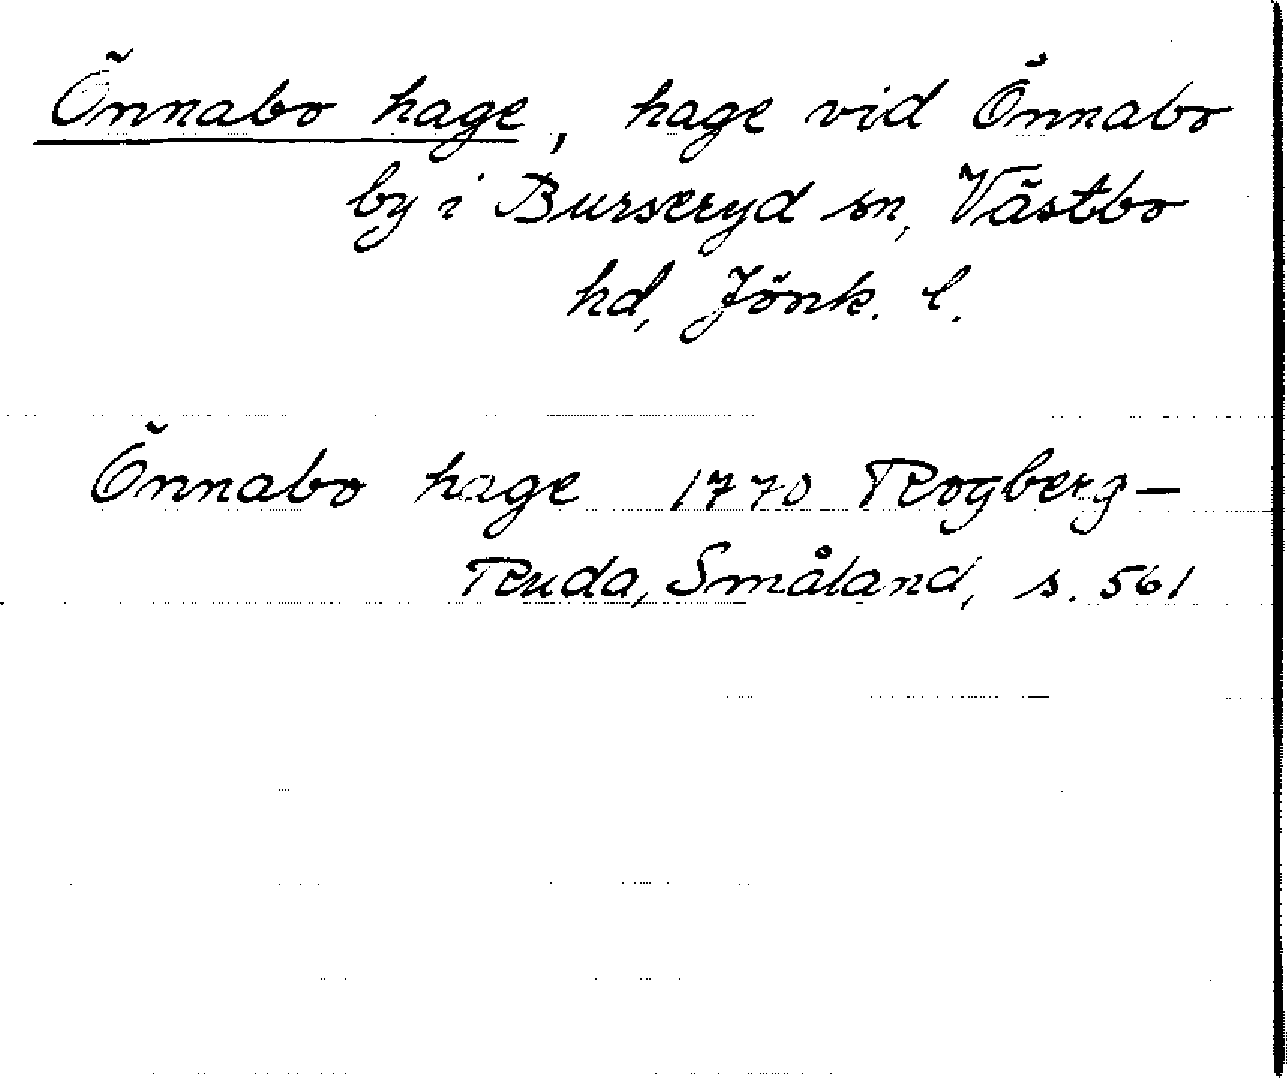 Önnabo hage, hage vid Önnabo
by i Burseryd sn, Västbo
hd, Jönk. l.
Önnabo hage 1770 Rogberg—
Ruda, Småland, s. 561